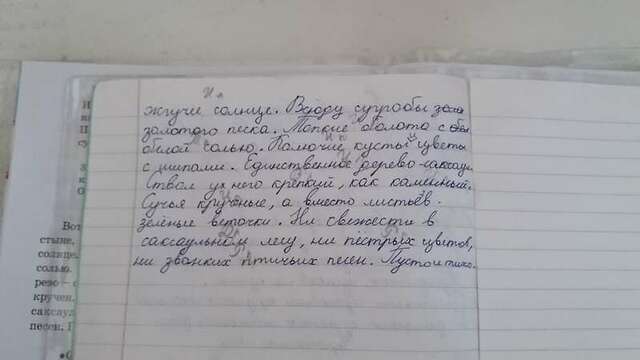 И п
жгучее солнце. Всюду сугробы
золотого песка. Топкие болота с
белой солью. Колючие кусты и цветы
с шипами. Единственное дерево-саксаул.
Ствол у него крепкий, как каменный.
Сучья кручёные, а вместо листьев -
зелёные веточки. Ни свежести в
саксаульном лесу, ни пёстрых цветов,
ни звонких птичьих песен. Пусто и тихо.
Вот
стыне.
солнце
солью.
рево –
кручен
саксаул
песен. П